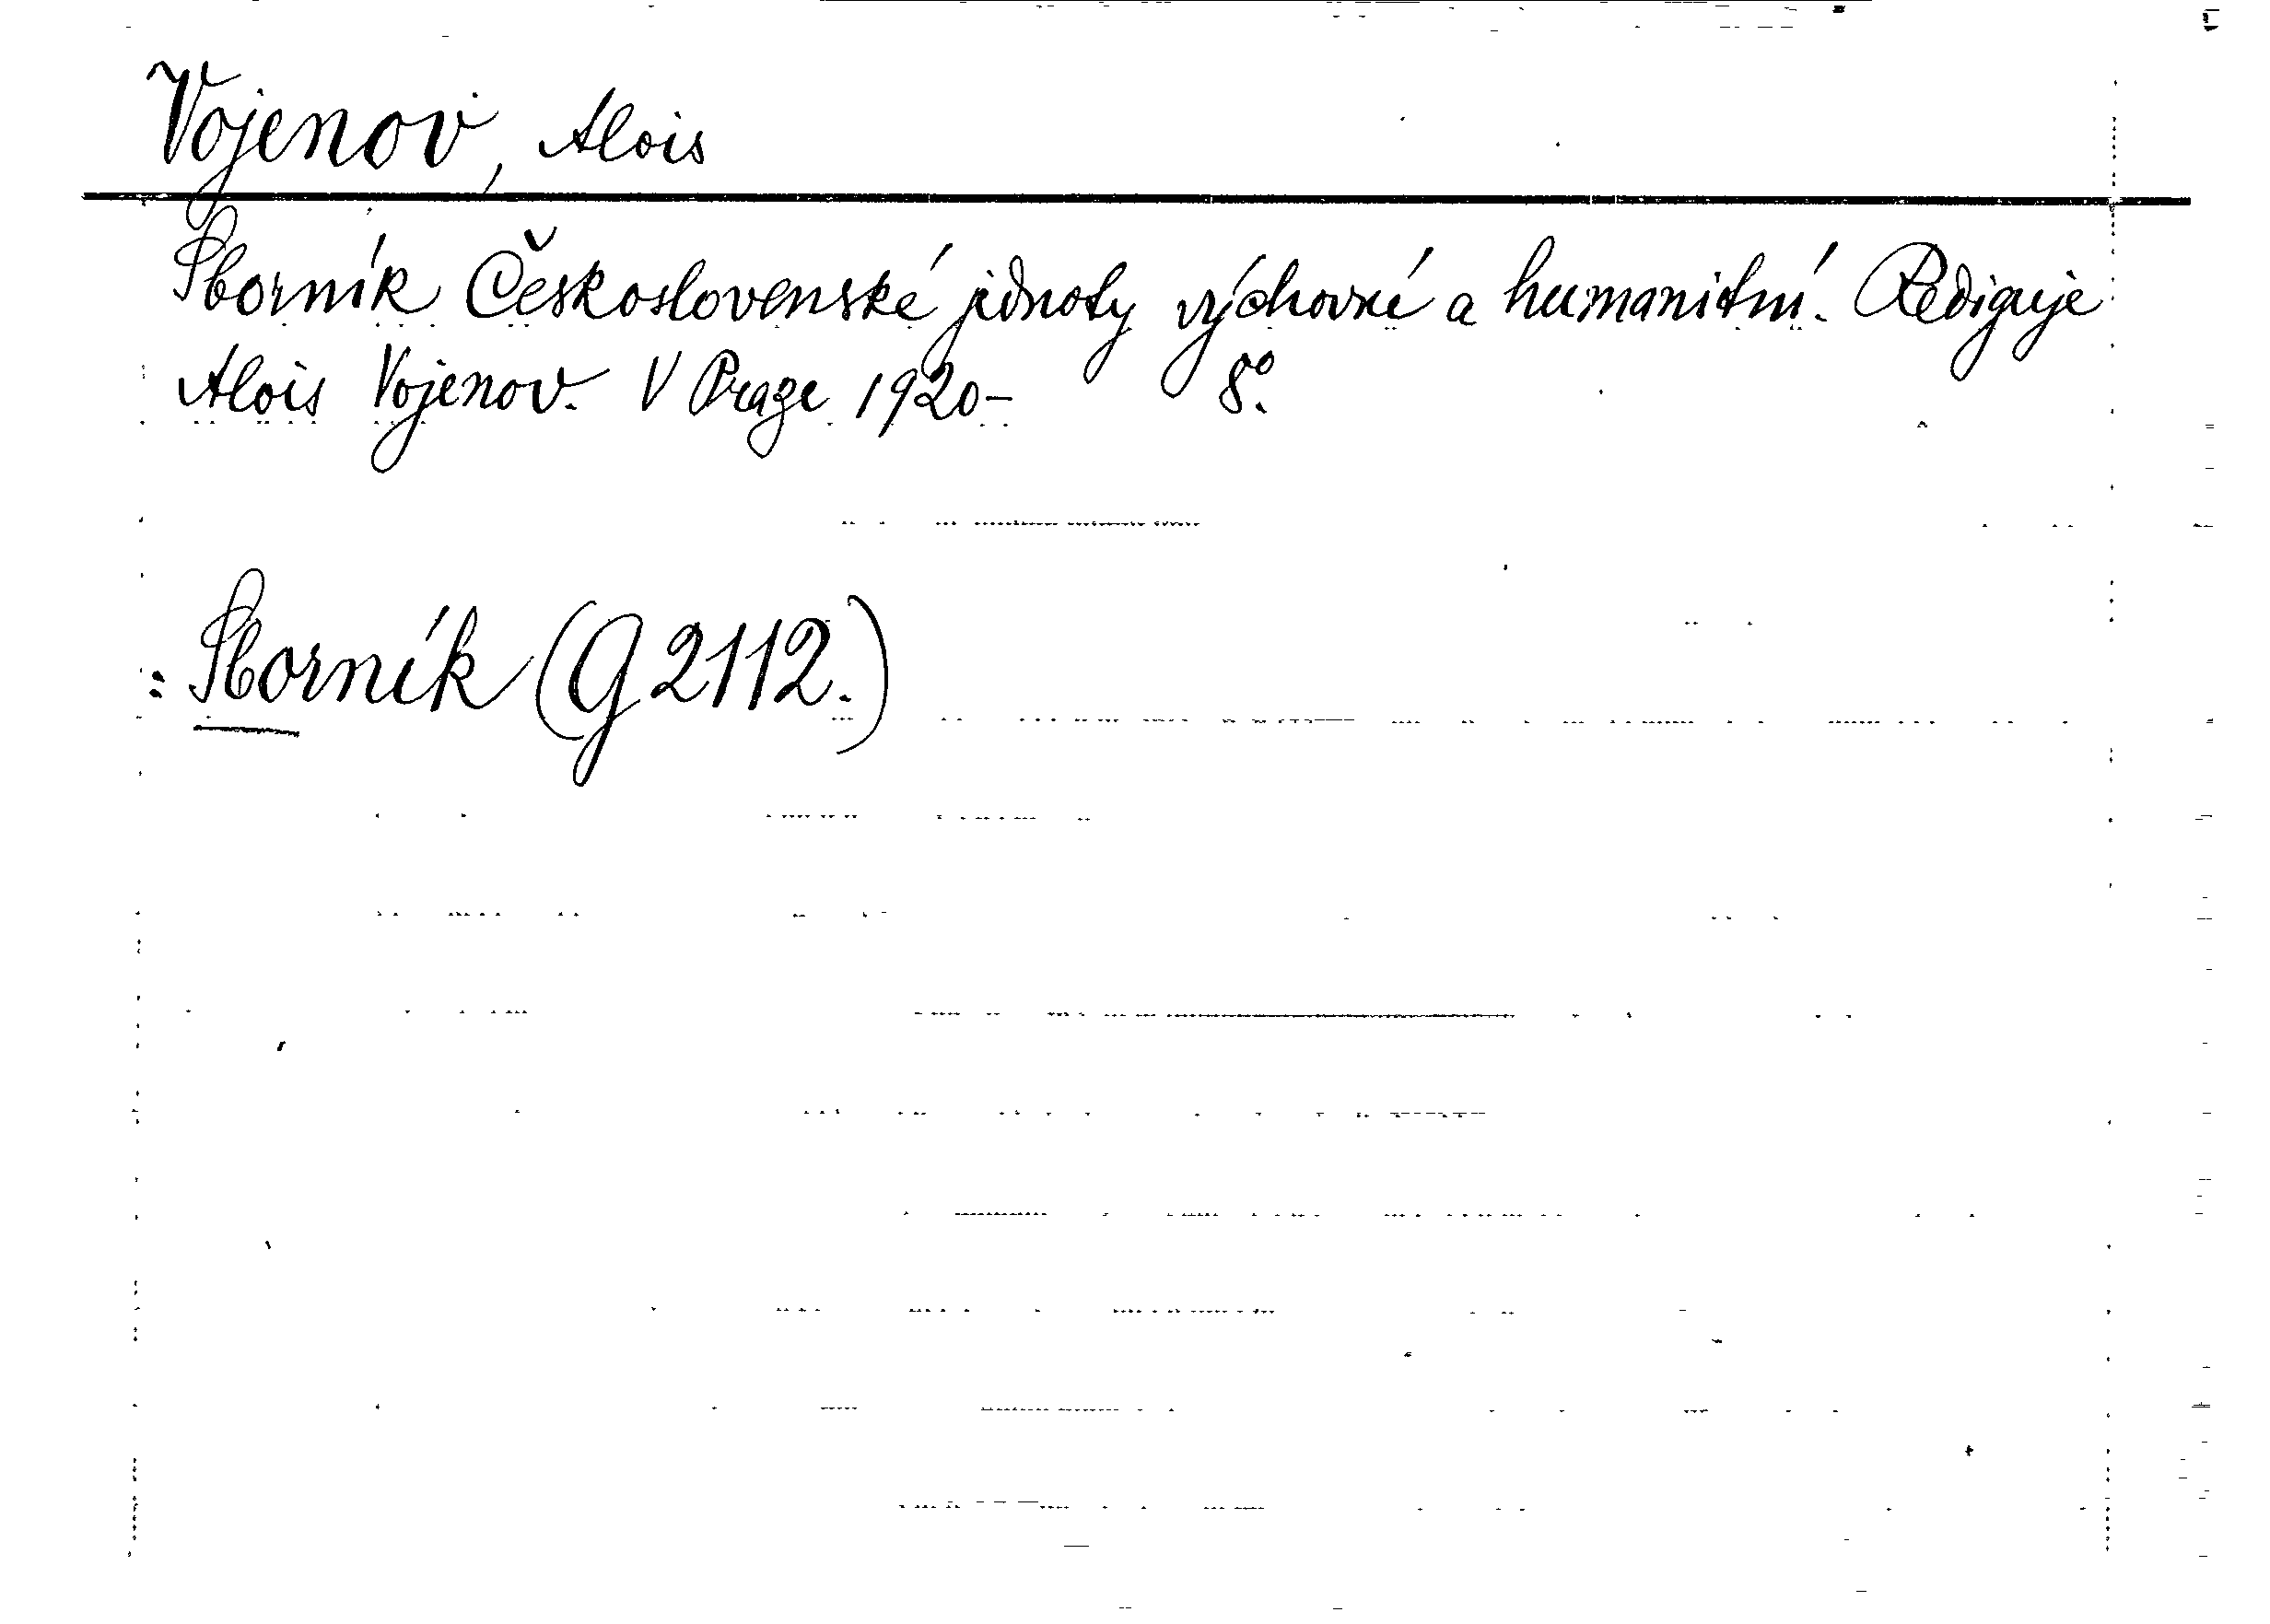 Vojenov, Alois
Sborník Československé jednoty výchovné a humanitní. Rediguje
Alois Vojenov. V Praze 1920- 8°.
: Sborník (G 2112.)